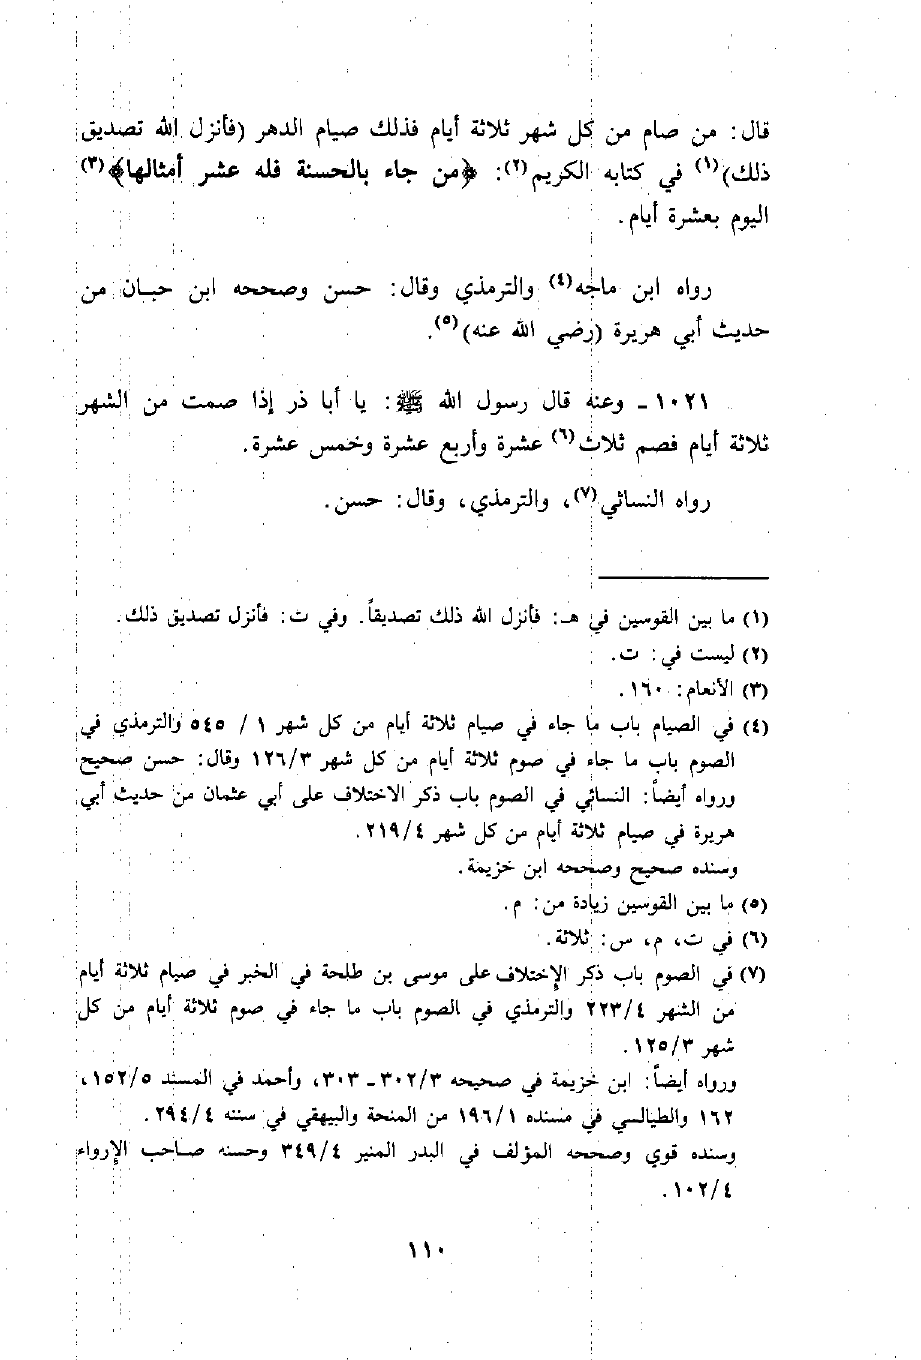 قال: من صام من كل شهر ثلاثة أيام فذلك صيام الدهر (فأنزل الله تصديق
ذلك)(١) في كتابه الكريم(٢): ﴿من جاء بالحسنة فله عشر أمثالها﴾(٣)
اليوم بعشرة أيام.
رواه ابن ماجه(٤) والترمذي وقال: حسن وصححه ابن حبان من
حديث أبي هريرة (رضي الله عنه)(٥).
١٠٢١ - وعنه قال رسول الله ﷺ: يا أبا ذر إذا صمت من الشهر
ثلاثة أيام فصم ثلاث(٦) عشرة وأربع عشرة وخمس عشرة.
رواه النسائي(٧)، والترمذي، وقال: حسن.
(١) ما بين القوسين في هـ: فأنزل الله ذلك تصديقاً. وفي ت: فأنزل تصديق ذلك.
(٢) ليست في: ت.
(٣) الأنعام: ١٦٠.
(٤) في الصيام باب ما جاء في صيام ثلاثة أيام من كل شهر ١ / ٥٤٥ والترمذي في
الصوم باب ما جاء في صوم ثلاثة أيام من كل شهر ١٢٦/٣ وقال: حسن صحيح
ورواه أيضاً: النسائي في الصوم باب ذكر الاختلاف على أبي عثمان من حديث أبي
هريرة في صيام ثلاثة أيام من كل شهر ٢١٩/٤.
وسنده صحيح وصححه ابن خزيمة.
(٥) ما بين القوسين زيادة من: م.
(٦) في ت، م، س: ثلاثة.
(٧) في الصوم باب ذكر الإختلاف على موسى بن طلحة في الخبر في صيام ثلاثة أيام
من الشهر ٢٢٣/٤ والترمذي في الصوم باب ما جاء في صوم ثلاثة أيام من كل
شهر ١٢٥/٣.
ورواه أيضاً: ابن خزيمة في صحيحه ٣٠٢/٣ - ٣٠٣، وأحمد في المسند ١٥٢/٥،
١٦٢ والطيالسي في مسنده ١٩٦/١ من المنحة والبيهقي في سننه ٢٩٤/٤.
وسنده قوي وصححه المؤلف في البدر المنير ٣٤٩/٤ وحسنه صاحب الإرواء
١٠٢/٤.
١١٠